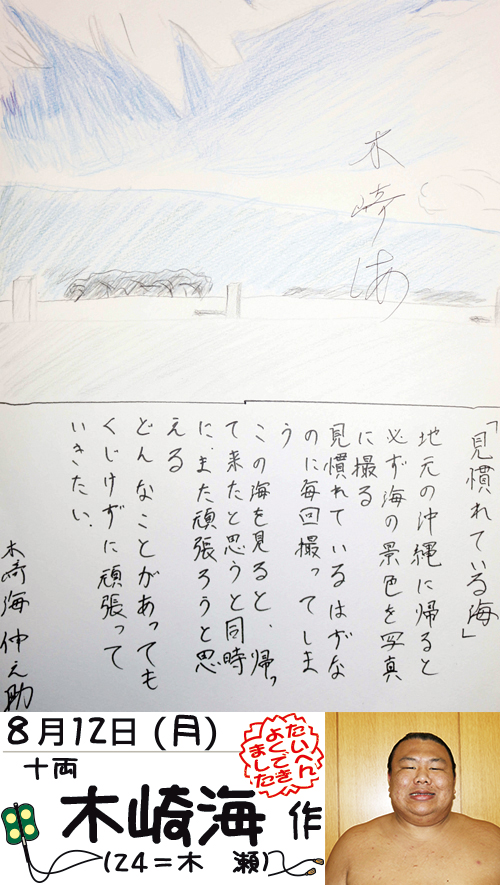 木崎海
「見慣れている海」
地元の沖縄に帰ると
必ず海の景色を写真
に撮る
見慣れているはずな
のに毎回撮ってしま
う
この海を見ると、帰っ
て来たと思うと同時
に、また頑張ろうと思
える
どんなことがあっても
くじけずに頑張って
いきたい。
木崎海 伸之助
8月12日(月)
十両
木崎海 作
(24=木 瀬)
たいへん
よくでき
ました